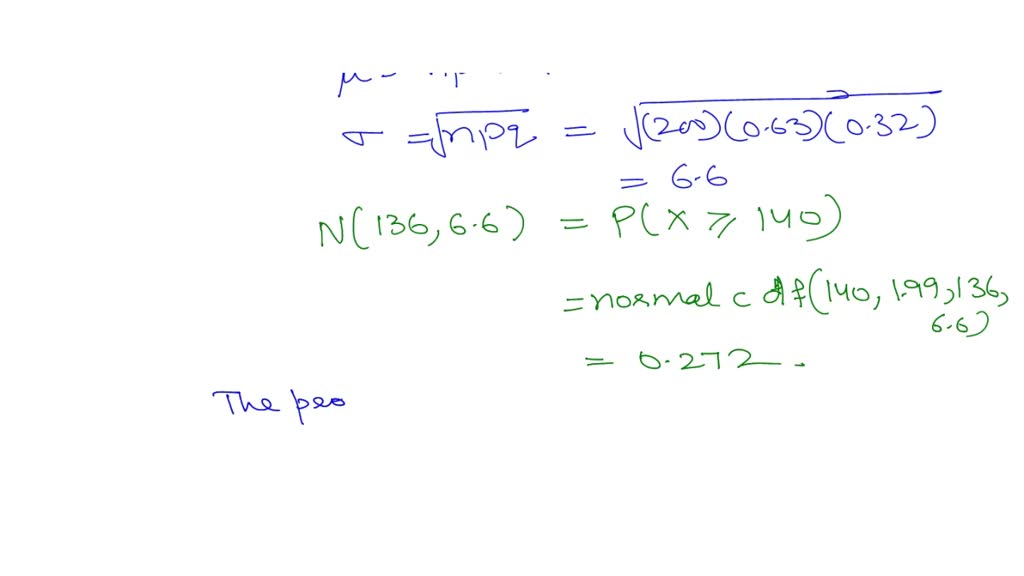 μ =
σ = √npq = √(200)(0.63)(0.32)
= 6.6
N(136, 6.6) = P(X ≥ 140)
= normal cdf(140, 1.99, 136,
6.6)
= 0.272.
The peo